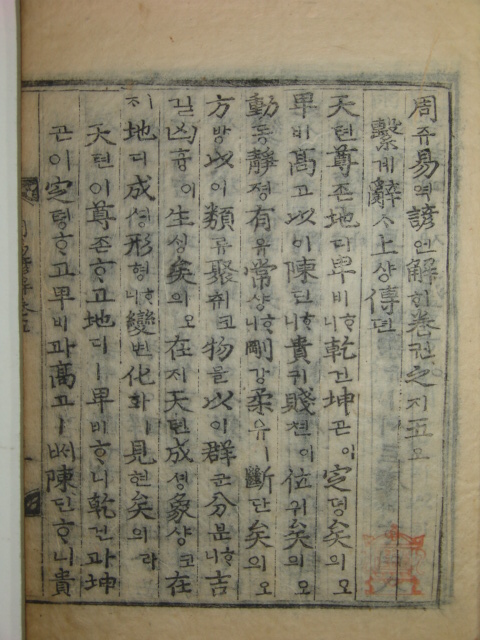 周쥬易역諺언解ᄒᆡ卷권之지五오
繫계辭ᄉ上샹傳뎐
天텬尊존地디卑비ᄒᆞ니乾건坤곤이定뎡矣의오
卑비高고以이陳딘ᄒᆞ니貴귀賤쳔이位위矣의오
動동靜졍有유常샹ᄒᆞ니剛강柔유ㅣ斷단矣의오
方방以이類류聚취코物믈以이群군分분ᄒᆞ니吉
길凶흉이生ᄉᆡᆼ矣의오在ᄌᆡ天텬成셩象샹코在
ᄌᆡ地디成셩形형ᄒᆞ니變변化화ㅣ見현矣의라
天텬이尊존ᄒᆞ고地디ㅣ卑비ᄒᆞ니乾건과坤
곤이定뎡ᄒᆞ고卑비와高고ㅣ써陳딘ᄒᆞ니貴